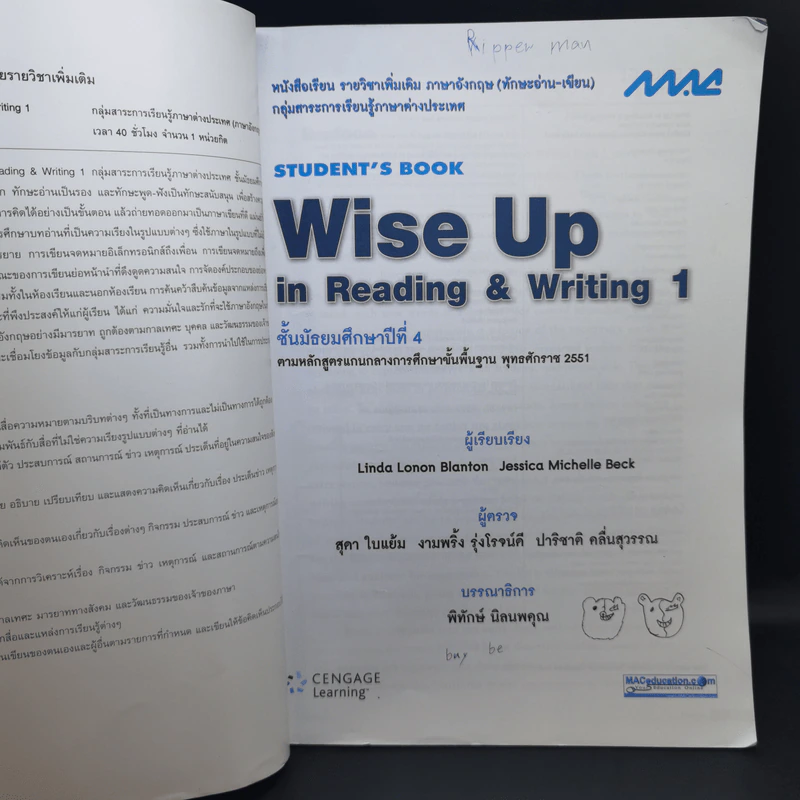 ยรายวิชาเพิ่มเติม
riting 1
กลุ่มสาระการเรียนรู้ภาษาต่างประเทศ (ภาษาอังกฤษ
เวลา 40 ชั่วโมง จำนวน 1 หน่วยกิต
ading & Writing 1 กลุ่มสาระการเรียนรู้ภาษาต่างประเทศ ชั้นมัธยมศึกษา
ก ทักษะอ่านเป็นรอง และทักษะพูด-ฟังเป็นทักษะสนับสนุน เพื่อสร้างความ
การคิดได้อย่างเป็นขั้นตอน แล้วถ่ายทอดออกมาเป็นภาษาเขียนที่ดี
รศึกษาบทอ่านที่เป็นความเรียงในรูปแบบต่างๆ ซึ่งใช้ภาษาในรูปแบบ
รยาย การเขียนจดหมายอิเล็กทรอนิกส์ถึงเพื่อน การเขียนจดหมายถึง
ณะของการเขียนย่อหน้านำที่ดึงดูดความสนใจ การจัดองค์ประกอบของย่อหน้า
มทั้งในห้องเรียนและนอกห้องเรียน การค้นคว้าสืบค้นข้อมูลจากแหล่งการเรียน
ะที่พึงประสงค์ให้แก่ผู้เรียน ได้แก่ ความมั่นใจและรักที่จะใช้ภาษาอังกฤษใน
อังกฤษอย่างมีมารยาท ถูกต้องตามกาลเทศะ บุคคล และวัฒนธรรมของเจ้าของ
ะเชื่อมโยงข้อมูลกับกลุ่มสาระการเรียนรู้อื่น รวมทั้งการนำไปใช้ในการประกอบ
สื่อความหมายตามบริบทต่างๆ ทั้งที่เป็นทางการและไม่เป็นทางการได้ถูกต้อง
มพันธ์กับสื่อที่ไม่ใช่ความเรียงรูปแบบต่างๆ ที่อ่านได้
ตัว ประสบการณ์ สถานการณ์ ข่าว เหตุการณ์ ประเด็นที่อยู่ในความสนใจของสังคม
ย อธิบาย เปรียบเทียบ และแสดงความคิดเห็นเกี่ยวกับเรื่อง ประเด็น ข่าว เหตุการณ์
คิดเห็นของตนเองเกี่ยวกับเรื่องต่างๆ กิจกรรม ประสบการณ์ ข่าว และเหตุการณ์
ด้จากการวิเคราะห์เรื่อง กิจกรรม ข่าว เหตุการณ์ และสถานการณ์ตามความสนใจ
าลเทศะ มารยาททางสังคม และวัฒนธรรมของเจ้าของภาษา
กสื่อและแหล่งการเรียนรู้ต่างๆ
นเขียนของตนเองและผู้อื่นตามรายการที่กำหนด และเขียนให้ข้อคิดเห็น
Ripper man
หนังสือเรียน รายวิชาเพิ่มเติม ภาษาอังกฤษ (ทักษะอ่าน-เขียน)
กลุ่มสาระการเรียนรู้ภาษาต่างประเทศ
MAC
STUDENT'S BOOK
Wise Up
in Reading & Writing 1
ชั้นมัธยมศึกษาปีที่ 4
ตามหลักสูตรแกนกลางการศึกษาขั้นพื้นฐาน พุทธศักราช 2551
ผู้เรียบเรียง
Linda Lonon Blanton Jessica Michelle Beck
ผู้ตรวจ
สุดา ใบแย้ม งามพริ้ง รุ่งโรจน์ดี ปาริชาติ คลื่นสุวรรณ
บรรณาธิการ
พิทักษ์ นิลนพคุณ
buy be
CENGAGE
Learning™
MACeducation.com
Education Online